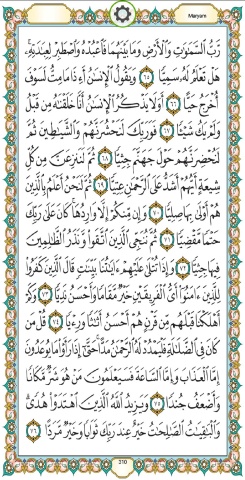 Maryam
رَّبُّ ٱلسَّمَـٰوَٰتِ وَٱلْأَرْضِ وَمَا بَيْنَهُمَا فَٱعْبُدْهُ وَٱصْطَبِرْ لِعِبَـٰدَتِهِۦ ۚ
هَلْ تَعْلَمُ لَهُۥ سَمِيًّا ٦٥ وَيَقُولُ ٱلْإِنسَـٰنُ أَءِذَا مَا مِتُّ لَسَوْفَ
أُخْرَجُ حَيًّا ٦٦ أَوَلَا يَذْكُرُ ٱلْإِنسَـٰنُ أَنَّا خَلَقْنَـٰهُ مِن قَبْلُ
وَلَمْ يَكُ شَيْـًٔا ٦٧ فَوَرَبِّكَ لَنَحْشُرَنَّهُمْ وَٱلشَّيَـٰطِينَ ثُمَّ
لَنُحْضِرَنَّهُمْ حَوْلَ جَهَنَّمَ جِثِيًّا ٦٨ ثُمَّ لَنَنزِعَنَّ مِن كُلِّ
شِيعَةٍ أَيُّهُمْ أَشَدُّ عَلَى ٱلرَّحْمَـٰنِ عِتِيًّا ٦٩ ثُمَّ لَنَحْنُ أَعْلَمُ بِٱلَّذِينَ
هُمْ أَوْلَىٰ بِهَا صِلِيًّا ٧٠ وَإِن مِّنكُمْ إِلَّا وَارِدُهَا ۚ كَانَ عَلَىٰ رَبِّكَ
حَتْمًا مَّقْضِيًّا ٧١ ثُمَّ نُنَجِّى ٱلَّذِينَ ٱتَّقَوا۟ وَّنَذَرُ ٱلظَّـٰلِمِينَ
فِيهَا جِثِيًّا ٧٢ وَإِذَا تُتْلَىٰ عَلَيْهِمْ ءَايَـٰتُنَا بَيِّنَـٰتٍ قَالَ ٱلَّذِينَ كَفَرُوا۟
لِلَّذِينَ ءَامَنُوٓا۟ أَىُّ ٱلْفَرِيقَيْنِ خَيْرٌ مَّقَامًا وَأَحْسَنُ نَدِيًّا ٧٣ وَكَمْ
أَهْلَكْنَا قَبْلَهُم مِّن قَرْنٍ هُمْ أَحْسَنُ أَثَـٰثًا وَرِءْيًا ٧٤ قُلْ مَن
كَانَ فِى ٱلضَّلَـٰلَةِ فَلْيَمْدُدْ لَهُ ٱلرَّحْمَـٰنُ مَدًّا ۚ حَتَّىٰٓ إِذَا رَأَوْا۟ مَا يُوعَدُونَ
إِمَّا ٱلْعَذَابَ وَإِمَّا ٱلسَّاعَةَ فَسَيَعْلَمُونَ مَنْ هُوَ شَرٌّ مَّكَانًا
وَأَضْعَفُ جُندًا ٧٥ وَيَزِيدُ ٱللَّهُ ٱلَّذِينَ ٱهْتَدَوْا۟ هُدًى ۗ
وَٱلْبَـٰقِيَـٰتُ ٱلصَّـٰلِحَـٰتُ خَيْرٌ عِندَ رَبِّكَ ثَوَابًا وَخَيْرٌ مَّرَدًّا ٧٦
310